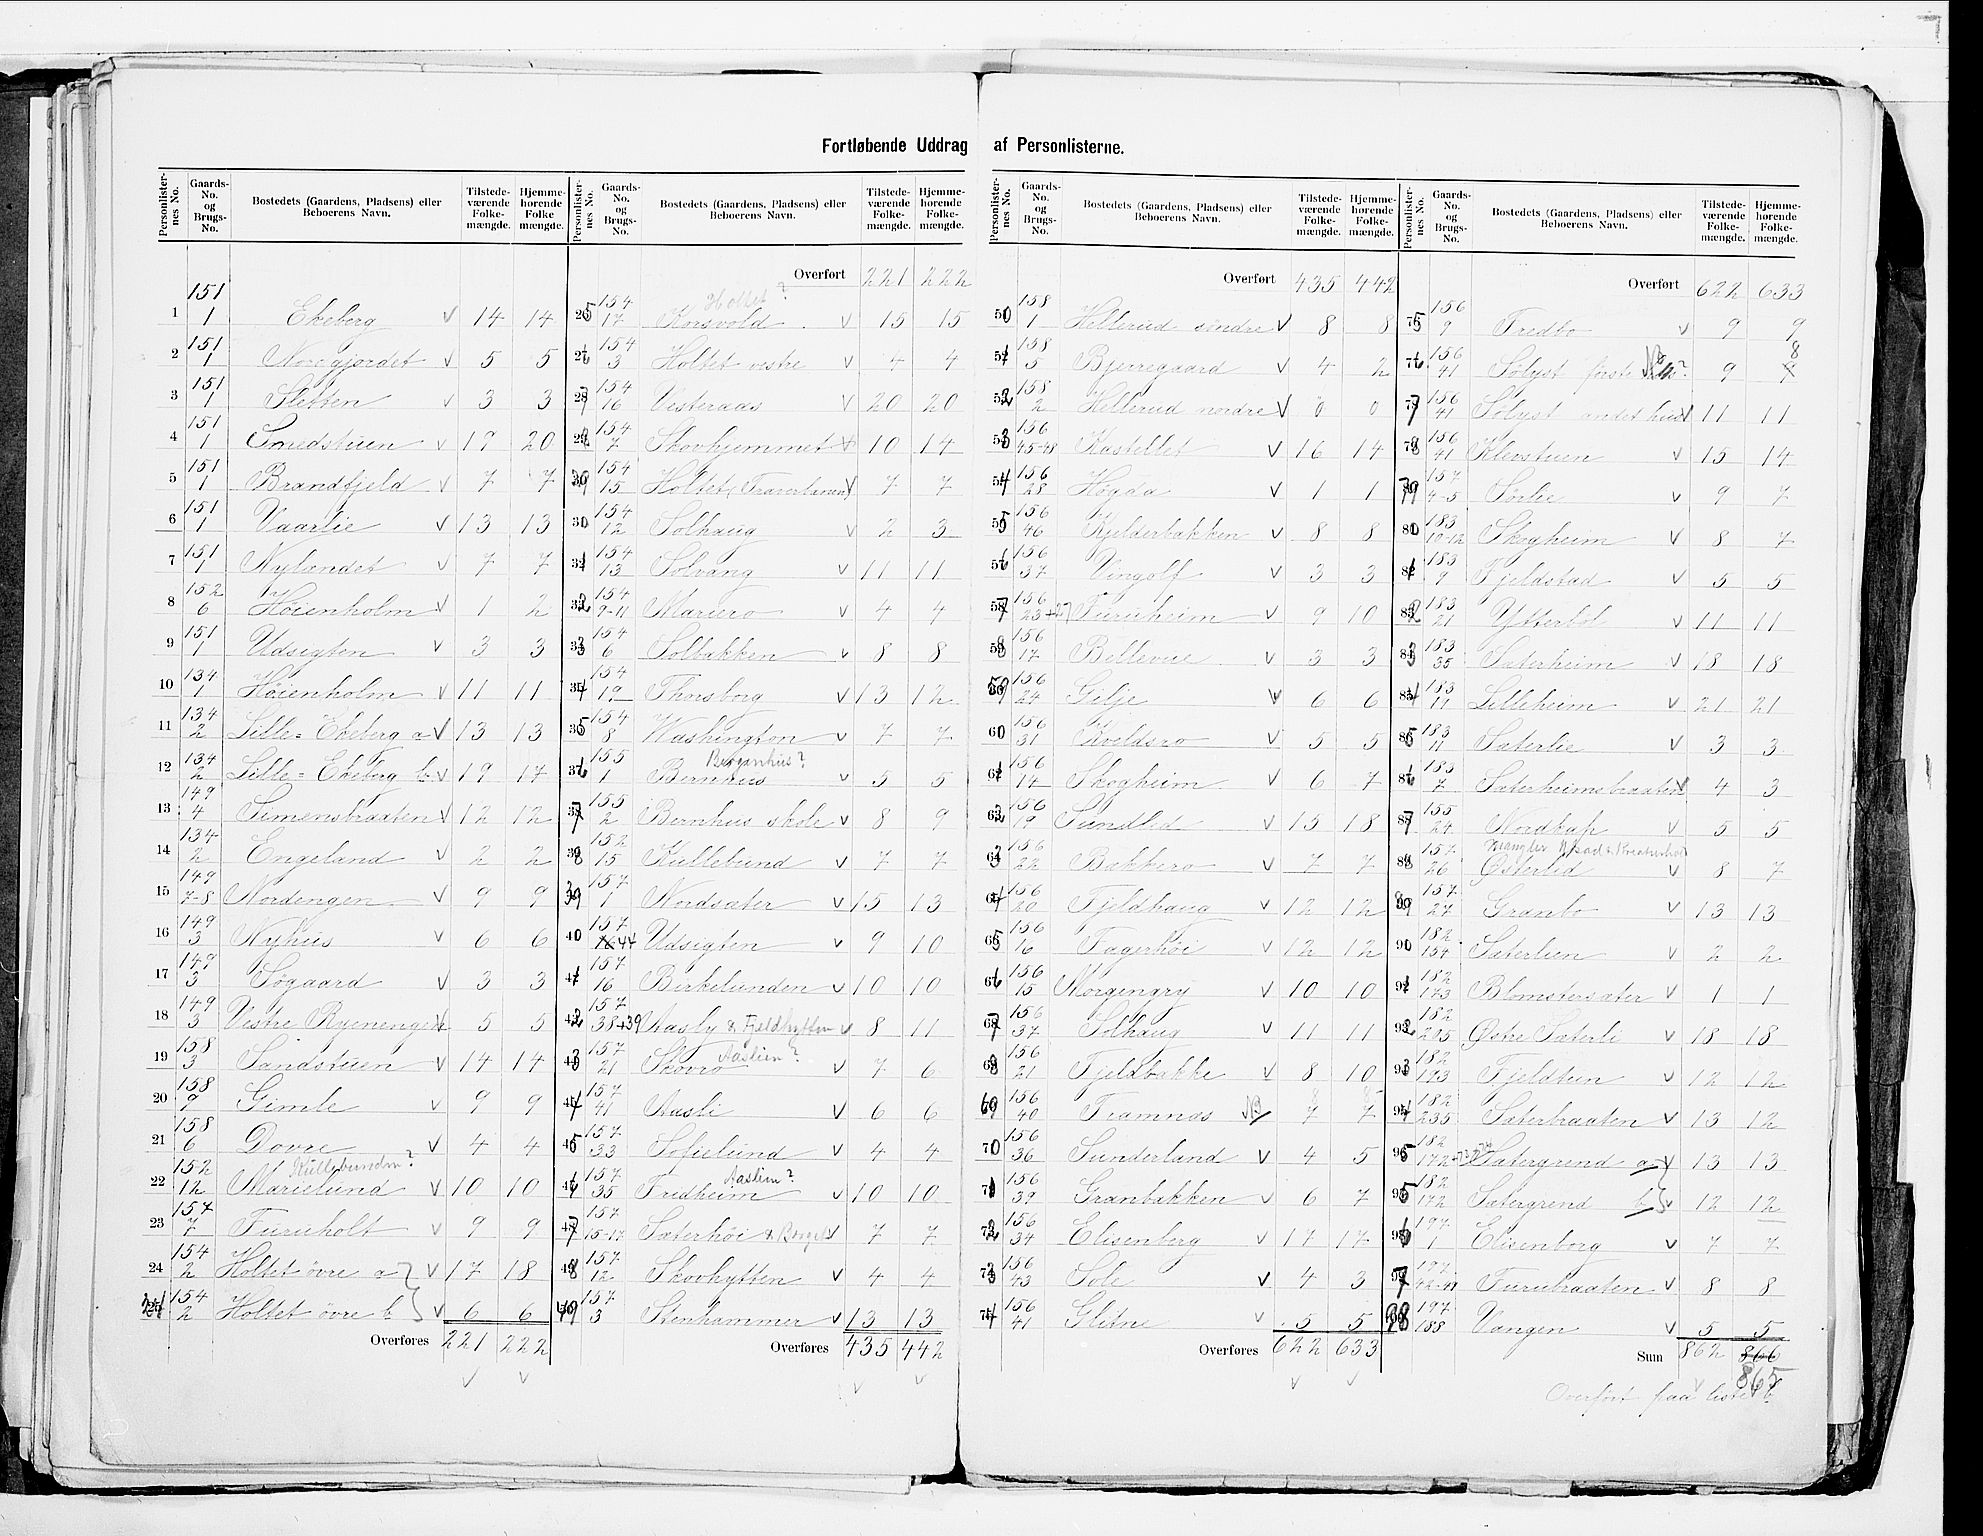 Fortløbende Uddrag af Personlisterne.
Personlisternes No. | Gaards-No. og Brugs-No. | Bostedets (Gaardens, Pladsens) eller Beboerens Navn. | Tilstedeværende Folkemængde. | Hjemmehørende Folkemængde.
1 151/1 Ekeberg v 14 14
2 151/1 Nordgjordet v 5 5
3 151/1 Sletten v 3 3
4 151/1 Smedstuen v 19 20
5 151/1 Brandfjeld v 7 7
6 151/1 Vaarlie v 13 13
7 151/1 Nylændet v 7 7
8 152/6 Høienholm v 1 2
9 151/1 Udsigten v 3 3
10 134/1 Høienholm v 11 11
11 134/2 Lille=Ekeberg a v 13 13
12 134/2 Lille=Ekeberg b v 19 17
13 149/4 Simensbraaten v 12 12
14 134/2 Engeland v 2 2
15 149/7-8 Nordengen v 9 9
16 149/3 Nyhus v 6 6
17 149/3 Søgaard v 3 3
18 149/3 Vestre Ryenengen v 5 5
19 158/3 Sandstuen v 14 14
20 158/9 Gimle v 9 9
21 158/6 Dovre v 4 4
Kullebunden?
22 152/12 Marielund v 10 10
23 157/7 Furuholt v 9 9
24 154/2 Holtet øvre a v 17 18
154/2 Holtet øvre b v 6 6
Overføres 221 222
v v
Personlisternes No. | Gaards-No. og Brugs-No. | Bostedets (Gaardens, Pladsens) eller Beboerens Navn. | Tilstedeværende Folkemængde. | Hjemmehørende Folkemængde.
Overført 221 222
Holtet?
25 154/17 Korsvold v 15 15
26 154/3 Holtet vestre v 4 4
27 154/16 Vesteraas v 20 20
28 154/7 Skovhjemmet v 10 14
29 154/15 Holtet v 7 7
30 154/12 Solhaug v 2 3
31 154/13 Solvang v 11 11
32 154/9-11 Mariero v 4 4
33 154/6 Solbakken v 8 8
34 154/19 Thorsborg v 13 12
35 154/8 Washington v 7 7
Bergenhus?
36 155/1 Bernhus v 5 5
37 155/2 Bernhus skole v 8 9
38 152/15 Kullebund v 7 7
39 157/1 Nordsæter v 15 13
40 157/44 Udsigten v 9 10
41 157/16 Birkelunden v 10 10
42 157/38+39 Aasly & Fjeldhytten v 8 11
Aaslien?
43 157/21 Skovro v 7 6
44 157/41 Aasli v 6 6
45 157/33 Sofielund v 4 4
Aaslien?
46 157/35 Fridheim v 10 10
47 157/15-17 Sæterhøi v 7 7
48 157/12 Skovhytten v 4 4
49 157/3 Stenhammer v 13 13
Overføres 435 442
v v
Personlisternes No. | Gaards-No. og Brugs-No. | Bostedets (Gaardens, Pladsens) eller Beboerens Navn. | Tilstedeværende Folkemængde. | Hjemmehørende Folkemængde.
Overført 435 442
50 158/1 Hellerud søndre v 8 8
51 158/5 Bjerregaard v 4 2
52 158/2 Hellerud nordre v 0 0
53 156/45-48 Kastellet v 16 14
54 156/28 Høgda v 1 1
55 156/46 Kjelderbakken v 8 8
56 156/37 Vingolf v 3 3
57 156/23+27 Furuheim v 9 10
58 156/17 Bellevue v 3 3
59 156/24 Gilje v 6 6
60 156/31 Kveldsro v 5 5
61 156/14 Skogheim v 6 7
62 156/19 Sundlid v 15 18
63 156/22 Bakkero v 7 7
64 156/20 Fjeldhaug v 12 12
65 156/16 Fagerhøi v 12 12
66 156/15 Morgengry v 10 10
67 156/37 Solhaug v 11 11
68 156/21 Fjeldbakke v 8 10
69 156/40 Framnæs NB v 7 7
70 156/36 Sunderland v 4 5
71 156/39 Granbakken v 6 7
72 156/34 Elisenberg v 17 17
73 156/43 Sole v 4 3
74 156/41 Glitne v 5 5
Overføres 622 633
v v
Personlisternes No. | Gaards-No. og Brugs-No. | Bostedets (Gaardens, Pladsens) eller Beboerens Navn. | Tilstedeværende Folkemængde. | Hjemmehørende Folkemængde.
Overført 622 633
75 156/9 Fredbo v 9 9
76 156/41 Sølyst første NB 9 8
77 156/41 Sølyst andet hus v 11 11
78 156/41 Klevstuen v 15 14
79 157/4-5 Sørlie v 9 7
80 183/10-12 Skogheim v 8 7
81 183/9 Fjeldstad v 5 5
82 183/21 Ytterbøl v 11 11
83 183/35 Sæterheim v 18 18
84 183/11 Lilleheim v 21 21
85 183/11 Sæterlie v 3 3
86 183/7 Sæterheimsbraaten v 4 3
87 155/24 Nordkap v 5 5
88 157/26 Østerlid v 8 7
89 157/27 Granbo v 13 13
90 182/154 Sæterlien v 2 2
91 182/173 Blomstersæter v 1 1
92 182/205 Østre Sæterli v 18 18
93 182/193 Fjeldtun v 12 12
94 182/235 Sæterbraaten v 13 12
95 182/172 Sætergrend a v 13 13
95 182/172 Sætergrend b v 12 12
96 197/1 Elisenborg v 7 7
97 197/42-47 Furubraaten v 8 8
98 197/188 Vangen v 5 5
Sum 862 866
865
v v
Overført paa liste 1 b